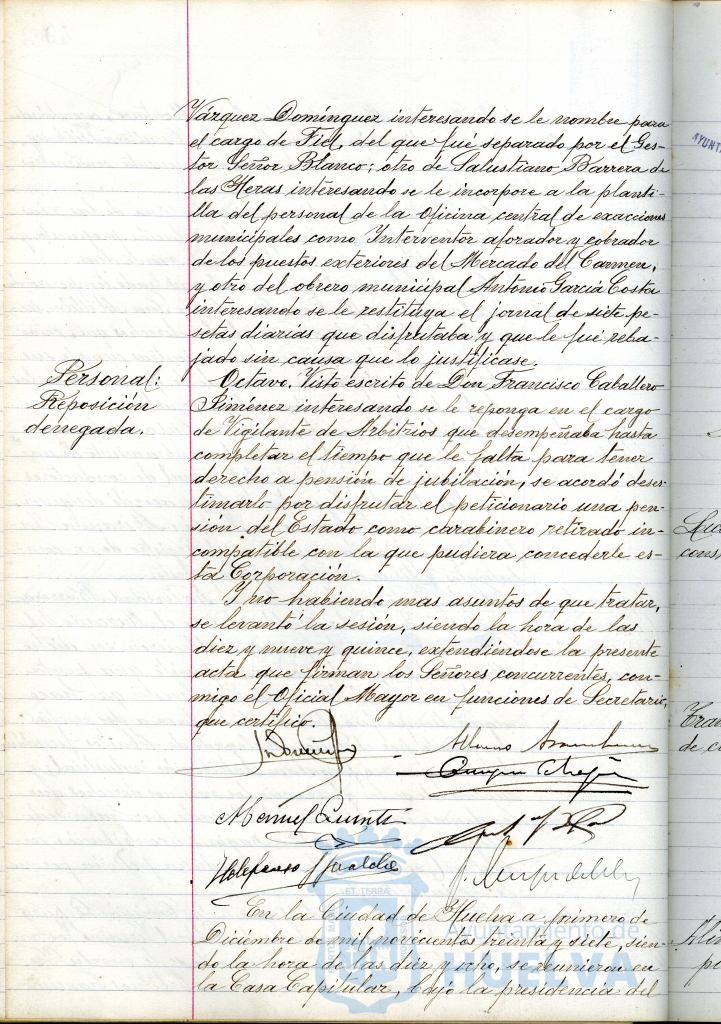 Vázquez Domínguez interesando se le nombre para
el cargo de Fiel, del que fué separado por el Ges-
tor Señor Blanco; otro de Salustiano Barrera de
las Heras interesando se le incorpore a la planti-
lla del personal de la Oficina central de exacciones
municipales como Interventor aforador y cobrador
de los puestos exteriores del Mercado del Carmen,
y otro del obrero municipal Antonio García Costa
interesando se le restituya el jornal de siete pe-
setas diarias que disfrutaba y que le fué reba-
jado sin causa que lo justificase.
Personal:
Reposición
denegada.
Octavo. Visto escrito de Don Francisco Caballero
Jiménez interesando se le reponga en el cargo
de Vigilante de Arbitrios que desempeñaba hasta
completar el tiempo que le falta para tener
derecho a pensión de jubilación, se acordó deses-
timarlo por disfrutar el peticionario una pen-
sión del Estado como carabinero retirado in-
compatible con la que pudiera concederle es-
ta Corporación.
Y no habiendo mas asuntos de que tratar,
se levantó la sesión, siendo la hora de las
diez y nueve y quince, extendiéndose la presente
acta que firman los Señores concurrentes, con-
migo el Oficial Mayor en funciones de Secretario,
que certifico.
Manuel
Ildefonso
En la Ciudad de Huelva a primero de
Diciembre de mil novecientos treinta y siete, sien-
do la hora de las diez y ocho, se reunieron en
la Casa Capitular, bajo la presidencia del
Ayuntamiento de
HUELVA